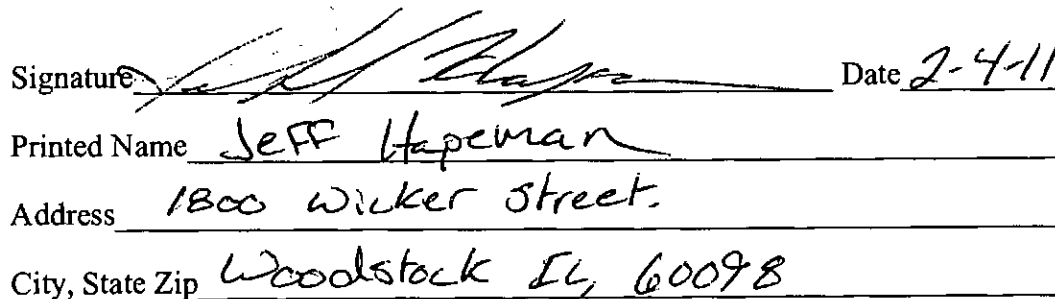 Signature Date 2-4-11
Printed Name Jeff Hapeman
Address 1800 Wicker Street.
City, State Zip Woodstock IL, 60098